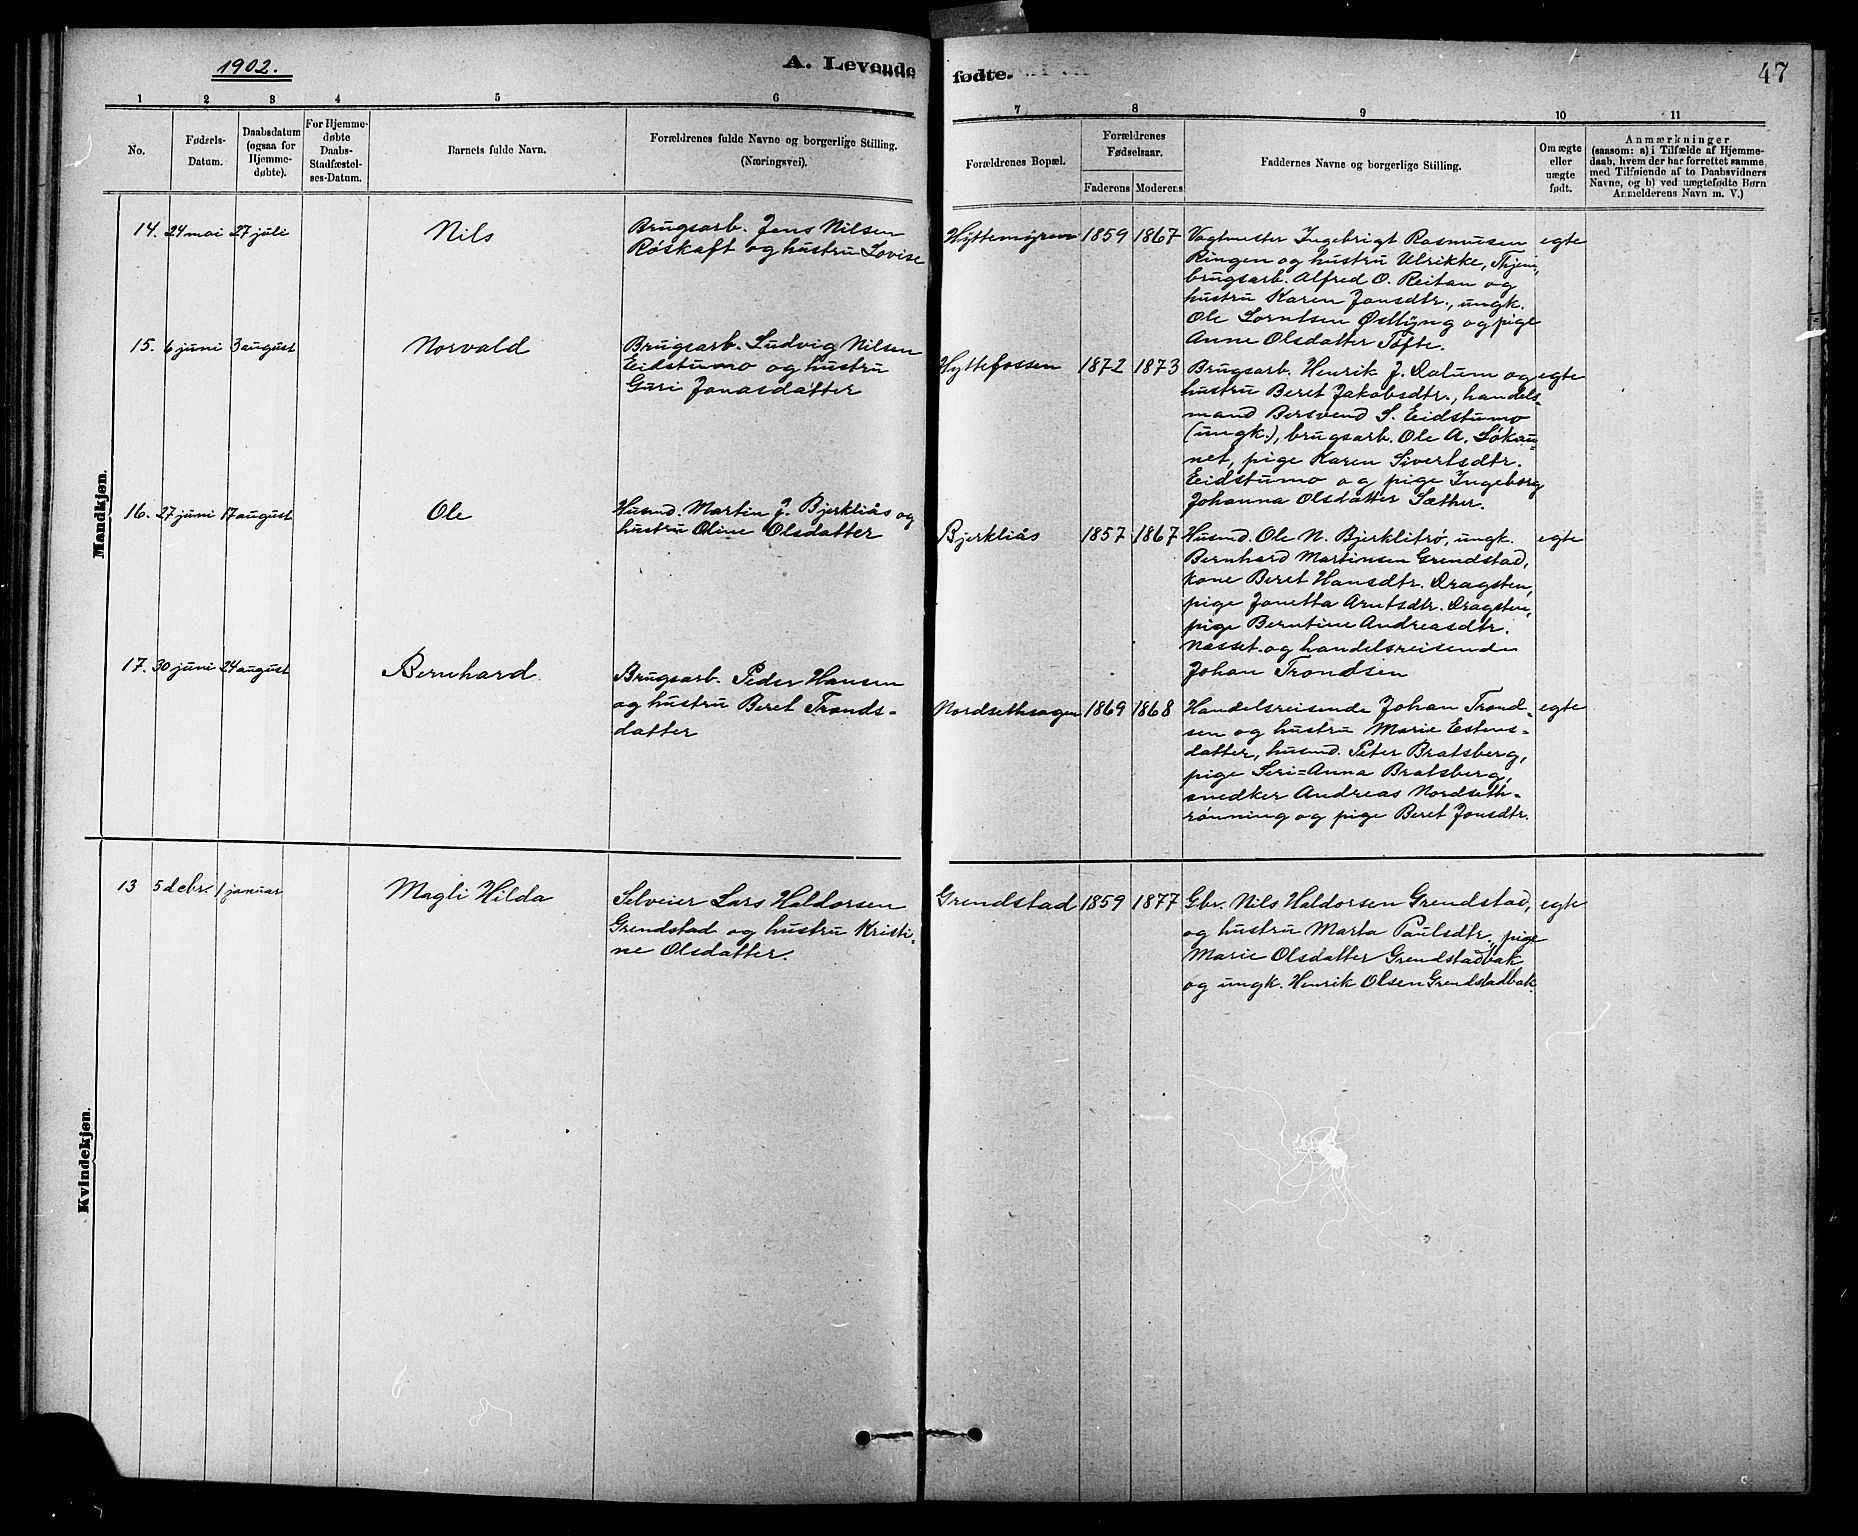 1902.
A. Levende fødte.
47
1 2 3 4 5 6 7 8 9 10 11
No.
Fødsels-Datum.
Daabsdatum (ogsaa for Hjemme-døbte).
For Hjemme-døbte Daabs-Stadfæstel-ses-Datum.
Barnets fulde Navn.
Forældrenes fulde Navne og borgerlige Stilling. (Næringsvei).
Forældrenes Bopæl.
Forældrenes Fødselsaar.
Faderens Moderens
Faddernes Navne og borgerlige Stilling.
Om ægte eller uægte født.
Anmærkninger
(saasom: a) i Tilfælde af Hjemme-
daab, hvem der har forrettet samme
med Tilføiende af to Daabsvidners
Navne, og b) ved uægtefødte Børn
Anmelderens Navn m. V.)
Mandkjøn.
14. 24 mai 27 juli
Nils
Brugsarb. Jens Nilsen
Røskaft og hustru Lovise
Hyttemyren 1859 1867
Vagtmester Ingebrigt Rasmusen
Ringen og hustru Ulrikke,
brugsarb. Alfred O. Reitan og
hustru Karen Jonsdtr., ungk.
Ole Lorntsen Østlyng og pige
Anne Olsdatter Tofte.
egte
15. 6 juni 3 august
Norvald
Brugsarb. Ludvig Nilsen
Eidstumo og hustru
Guri Jonasdatter
Hyttefossen 1872 1873
Brugsarb. Henrik J. Dalum og
hustru Beret Jakobsdtr., handels-
mand Bersvend S. Eidstumo
(ungk.), brugsarb. Ole A. Løkau-
net, pige Karen Sivertsdtr.
Eidstumo og pige Ingeborg
Johanna Olsdatter Sæther.
egte
16. 27 juni 17 august
Ole
Husmd. Martin J. Bjerkliås og
hustru Oline Olsdatter
Bjerkliås 1857 1867
Husmd. Ole N. Bjerklitrø, ungk.
Bernhard Martinsen Grendstad,
kone Beret Hansdtr. Dragsten,
pige Jonetta Arntsdtr. Dragsten,
pige Berntine Andreasdtr.
Næsset og handelsreisende
Johan Trondsen
egte
17. 30 juni 24 august
Bernhard
Brugsarb. Peder Hansen
og hustru Beret Tronds-
datter
Nordsethsagen 1869 1868
Handelsreisende Johan Trond-
sen og hustru Marie Estens-
datter, husmd. Peter Bratsberg,
pige Seri=Anna Bratsberg,
snedker Andreas Nordseth-
rønning og pige Beret Jonsdtr.
egte
Kvindekjøn.
13 5 debr. 1 januar
Magli Hilda
Selveier Lars Haldorsen
Grendstad og hustru Kristi-
ne Olsdatter.
Grendstad 1859 1877
Gbr. Nils Haldorsen Grendstad,
og hustru Marta Paulsdtr., pige
Marie Olsdatter Grendstadbak
og ungk. Henrik Olsen Grendstadbak.
egte